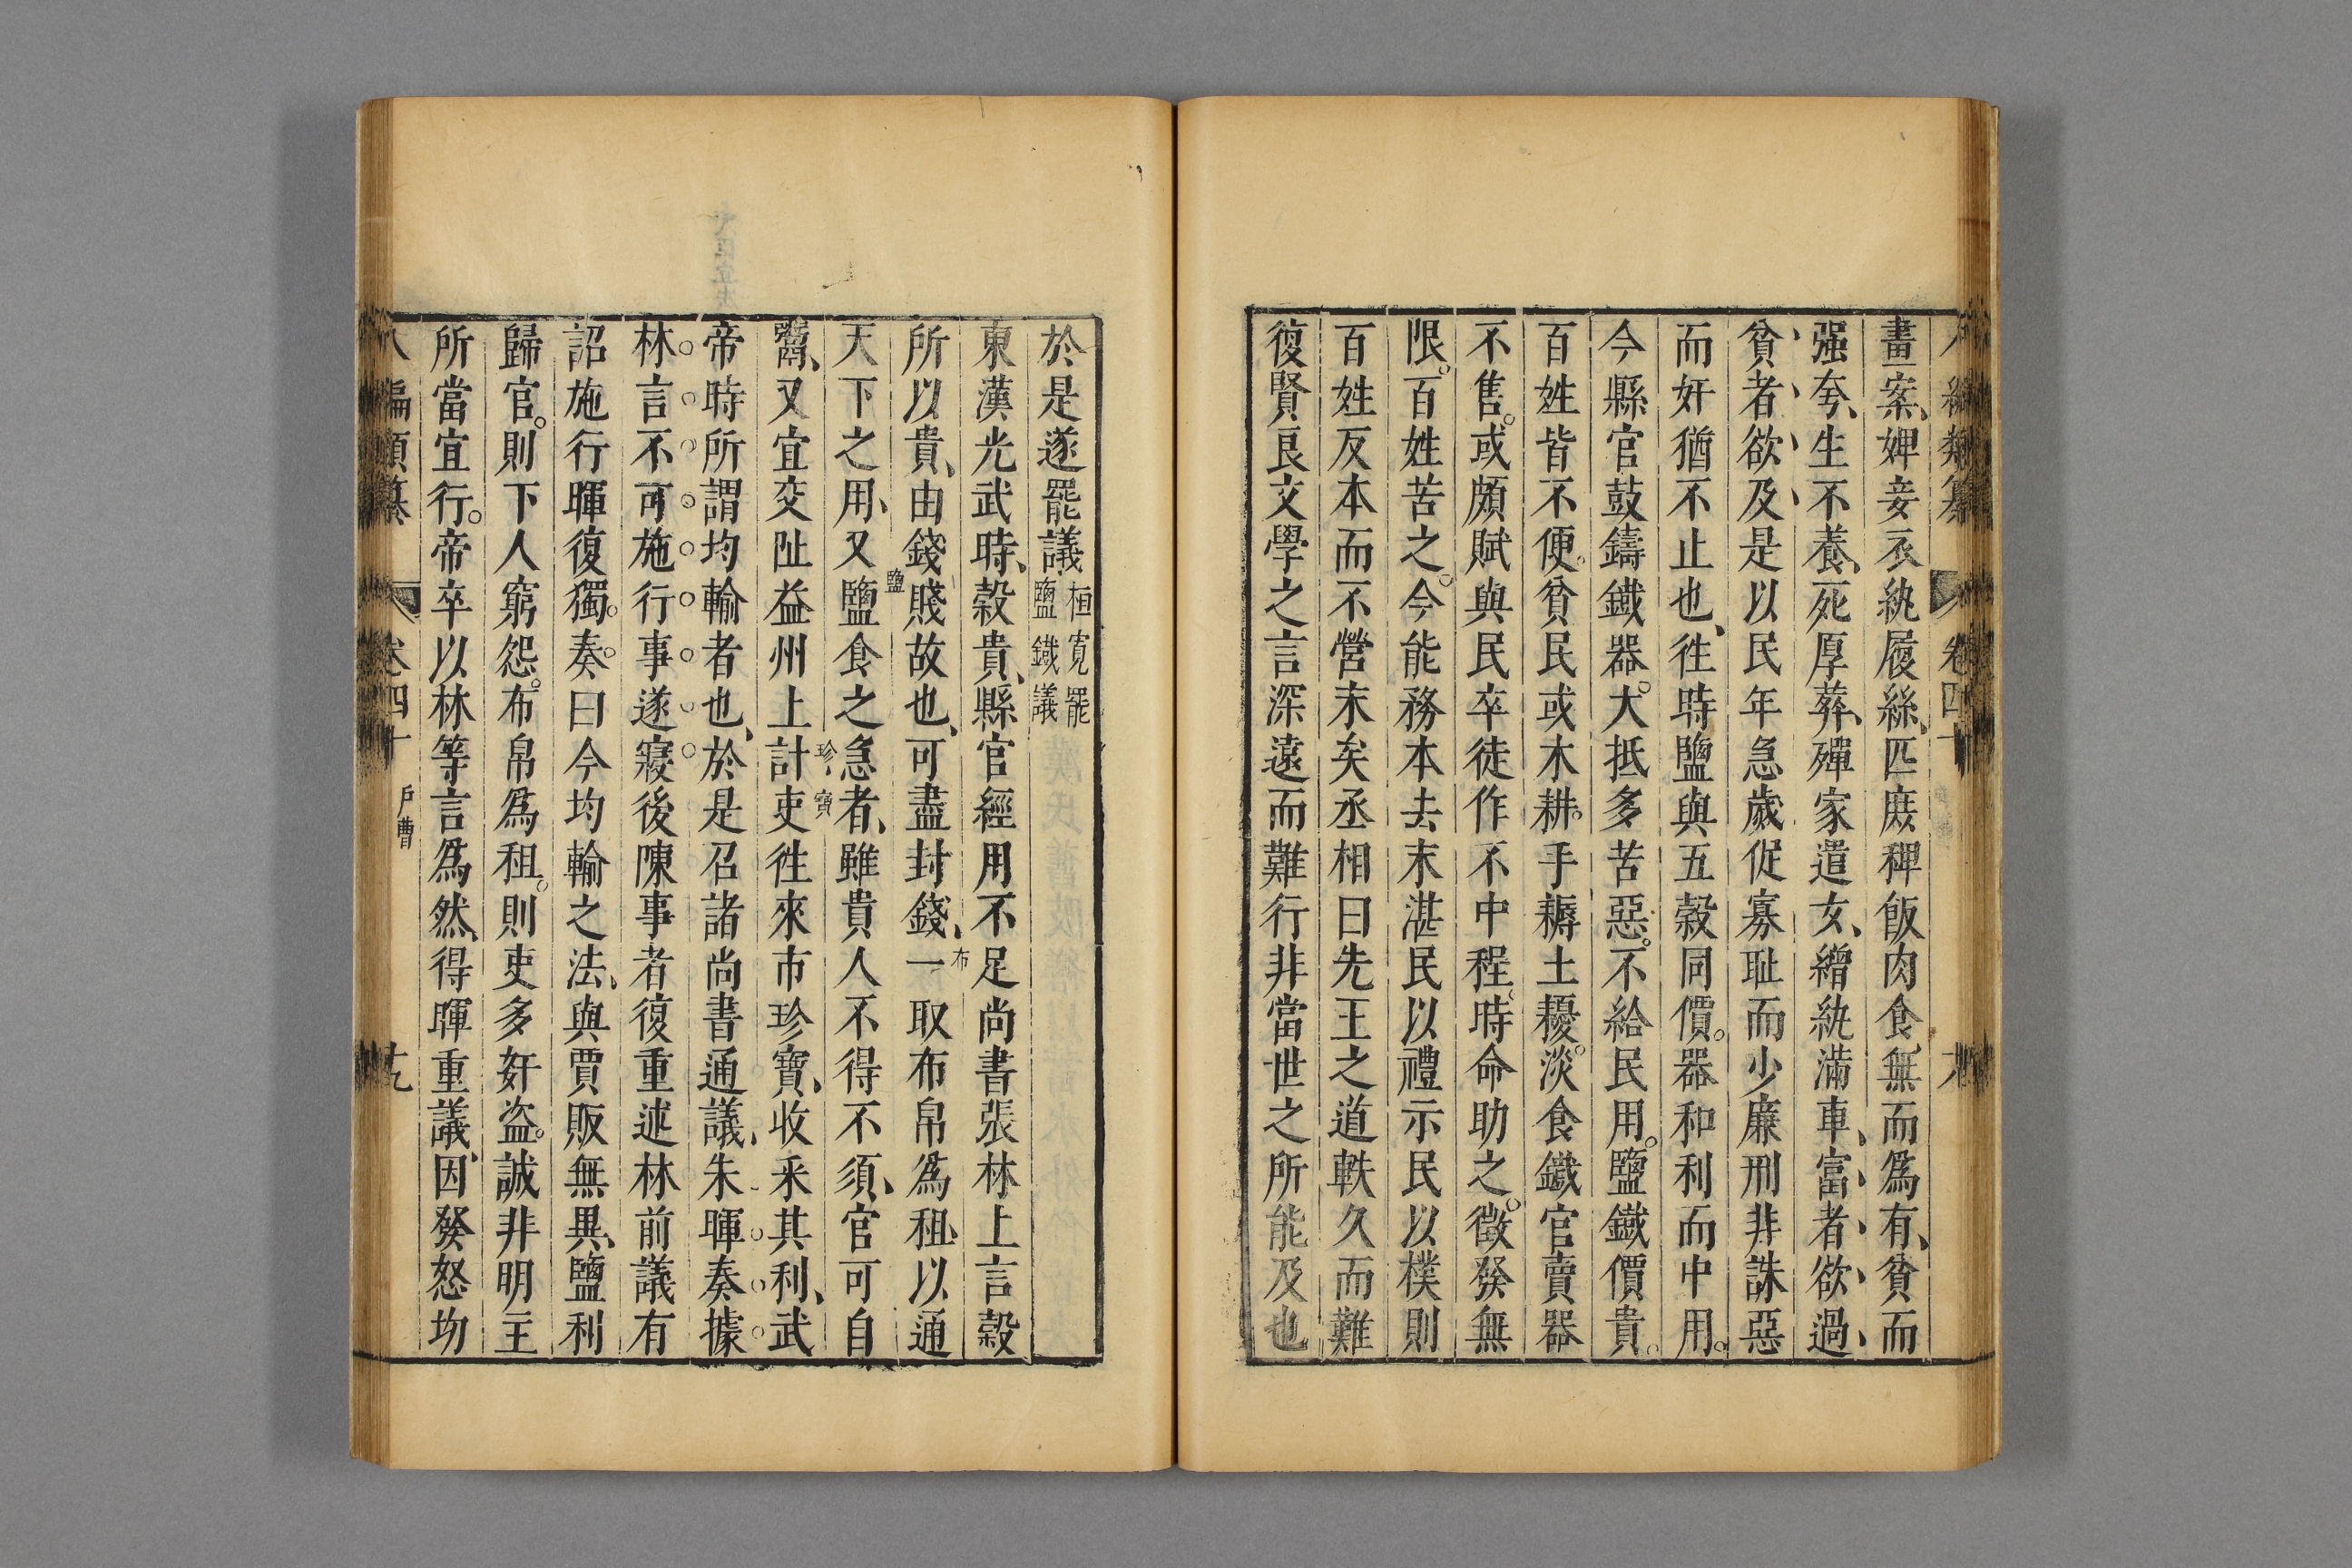 八編類纂 卷四十
畫案、婢妾衣紈履絲、匹庶稗飯肉食、無而爲有、貧而
强夸、生不養、死厚葬、殫家遣女、繒紈滿車、富者欲過、
貧者欲及是以民年急歲促寡恥而少廉刑非誅惡
而奸猶不止也、徃時鹽與五穀同價。器和利而中用。
今縣官鼓鑄鐵器。大抵多苦惡。不給民用。鹽鐵價貴。
百姓皆不便。貧民或木耕。手耨土耰。淡食鐵官賣器
不售。或頗賦與民卒徒作不中程。時命助之。徵發無
限。百姓苦之。今能務本去末湛民以禮示民以樸則
百姓反本而不營末矣丞相曰先王之道軼久而難
復賢良文學之言深遠而難行非當世之所能及也
於是遂罷議桓寬罷鹽鐵議
東漢光武時、穀貴、縣官經用不足尚書張林上言穀
所以貴、由錢賤故也、可盡封錢、一取布帛爲租、以通
布
天下之用、又鹽食之急者、雖貴人不得不須、官可自
鹽
鬻、又宜交阯益州上計吏徃來市珍寶、收采其利、武
珍寶
帝時所謂均輸者也、於是召諸尚書通議、朱暉奏據
林言不可施行事遂寢後陳事者復重述林前議有
詔施行暉復獨。奏。曰今均輸之法、與賈販無異、鹽利
歸官。則下人窮怨。布帛爲租。則吏多奸盜。誠非明主
所當宜行。帝卒以林等言爲然、得暉重議、因發怒切
八編類纂 卷四十 戶曹 十九